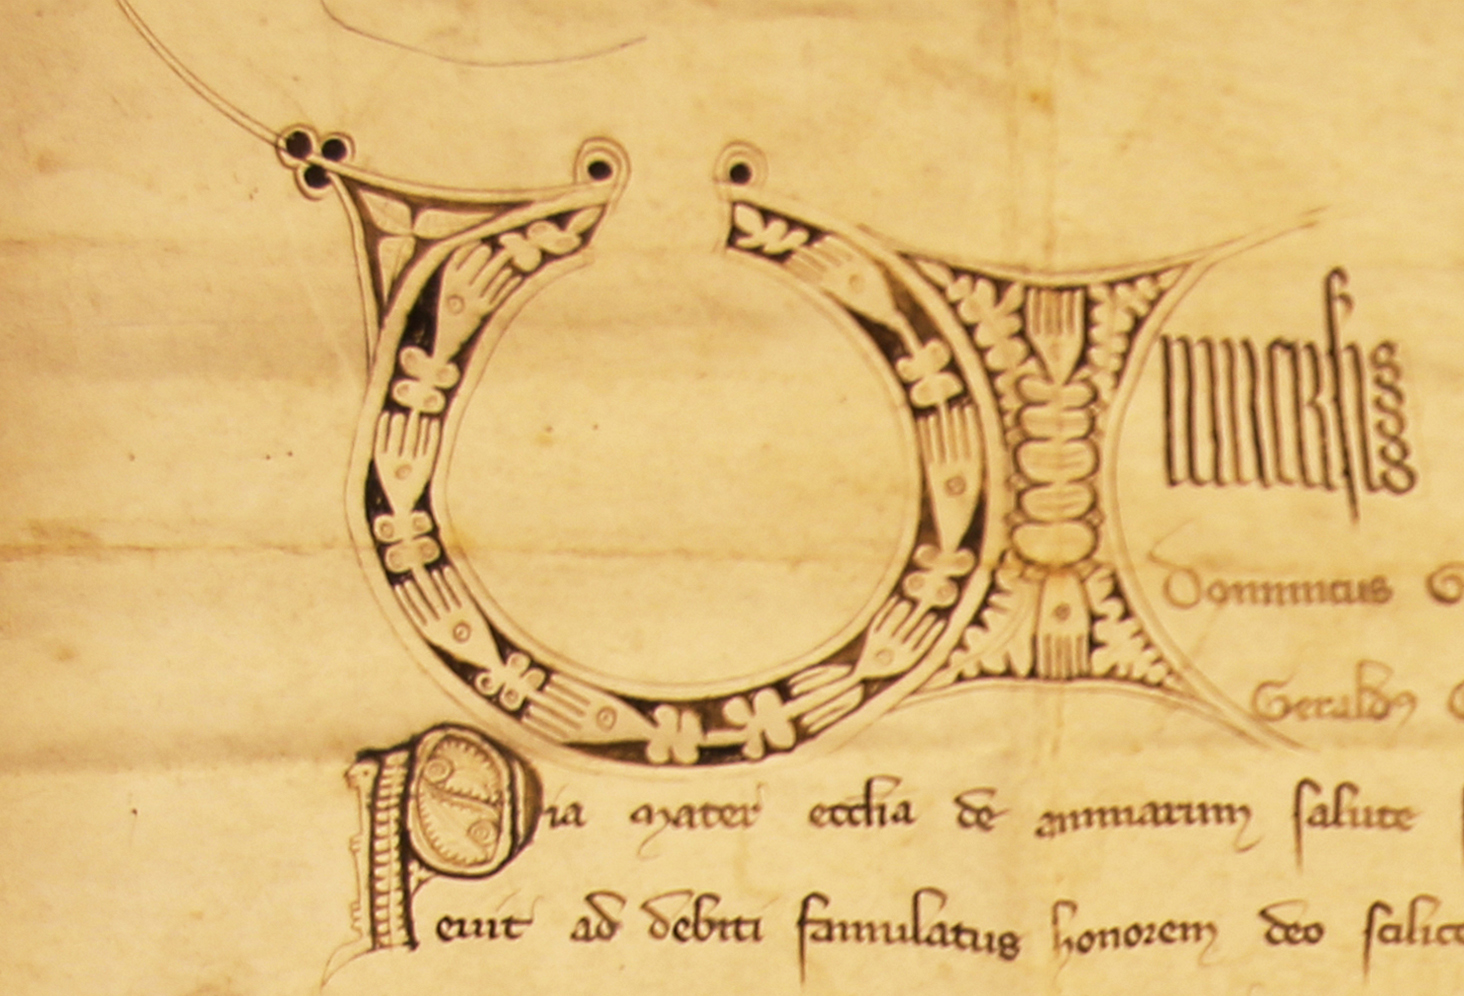 Uniuersis
Dominicus G
Geraldus
Pia mater ecclia de animarum salute
euit ad debiti famulatus honorem deo scilice